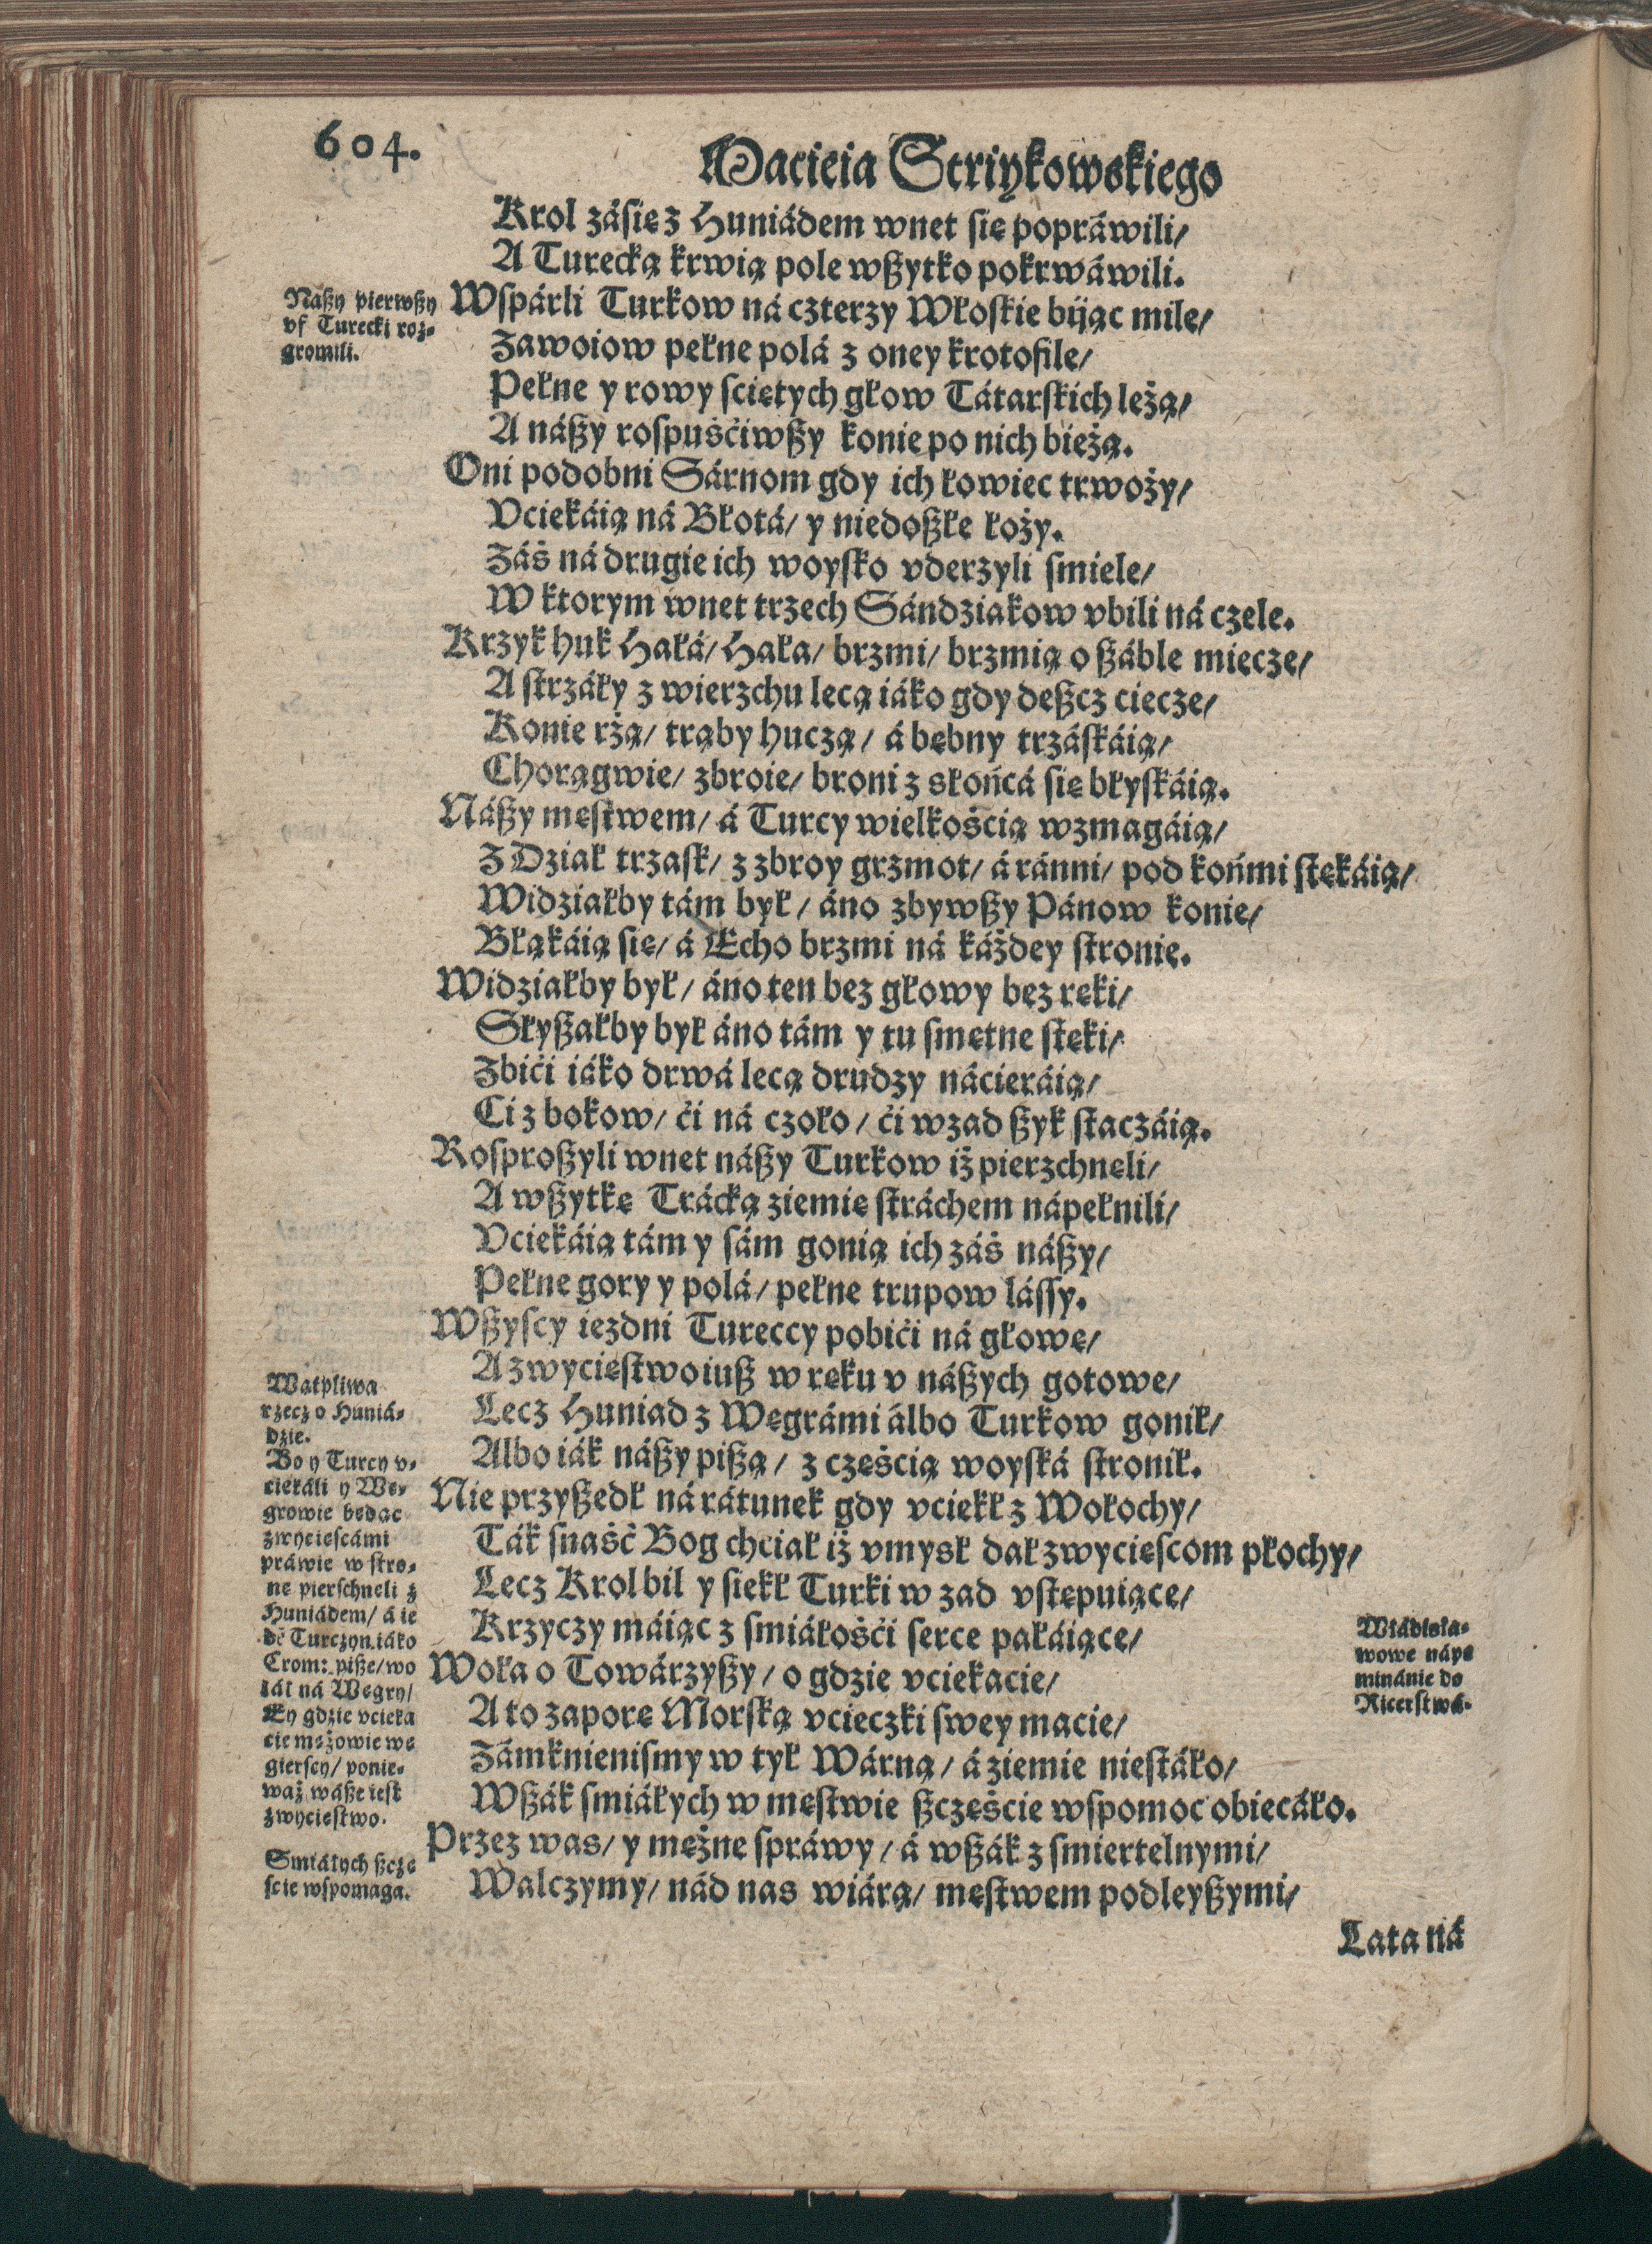 604.
Macieia Striykowskiego
Krol zásię z Huniádem wnet się popráwili/
A Turecką krwią pole wßytko pokrwáwili.
Naßy pierwßy
vf Turecki roz-
gromili.
Wſpárli Turkow ná czterzy Włoſkie biiąc mile/
Zawoiow pełne polá z oney krotofile/
Pełne y rowy ſciętych głow Tátarſkich leżą/
A náßy roſpuśćiwßy konie po nich bieżą.
Oni podobni Sárnom gdy ich łowiec trwoży/
Vciekáią ná Błotá/ y niedoßłe łoży.
Záś ná drugie ich woyſko vderzyli ſmiele/
W ktorym wnet trzech Sándziakow vbili ná czele.
Krzyk huk Hałá/ Hała/ brzmi/ brzmią o ßáble miecze/
A ſtrzáły z wierzchu lecą iáko gdy deßcz ciecze/
Konie rżą/ trąby huczą/ á bębny trzáſkáią/
Chorągwie/ zbroie/ broni z słońcá się błyſkáią.
Náßy męſtwem/ á Turcy wielkośćią wzmagáią/
Z Dział trzaſk/ z zbroy grzmot/ á ránni/ pod końmi ſtękáią/
Widziałby tám był/ áno zbywßy Pánow konie/
Błąkáią się/ á Echo brzmi ná káżdey ſtronie.
Widziałby był/ áno ten bez głowy bez ręki/
Słyßałby był áno tám y tu ſmętne ſtęki/
Zbići iáko drwá lecą drudzy nácieráią/
Ci z bokow/ ći ná czoło/ ći wzad ßyk ſtaczáią.
Roſproßyli wnet náßy Turkow iż pierzchnęli/
A wßytkę Trácką ziemię ſtráchem nápełnili/
Vciekáią tám y ſám gonią ich záś náßy/
Pełne gory y polá/ pełne trupow láſſy.
Wßyſcy iezdni Tureccy pobići ná głowę/
A zwycięſtwo iuß w ręku v náßych gotowe/
Wątpliwa
rzecz o Huniá-
dzie.
Lecz Huniad z Węgrámi álbo Turkow gonił/
Albo iák náßy pißą/ z częśćią woyſká ſtronił.
Bo y Turcy v-
ciekáli y Wę-
growie będąc
zwycięſcámi
práwie w ſtro-
nę pierſchneli z
Huniádem/ á ie
dē Turczyn iáko
Crom: piße/ wo
łał ná Węgry/
Ey gdzie vcieka
cie mężowie wę
gierſcy/ ponie-
waż wáße ieſt
zwycięſtwo.
Nie przyßedł ná rátunek gdy vciekł z Wołochy/
Ták ſnaść Bog chciał iż vmysł dał zwycięſcom płochy/
Lecz Krol bił y siekł Turki w zad vſtępuiące/
Krzyczy máiąc z ſmiáłośći ſerce pałáiące/
Włádisłá-
wowe nápo
minánie do
Ricerſtwá.
Woła o Towárzyßy/ o gdzie vciekacie/
A to zaporę Morſką vcieczki ſwey macie/
Zámknieniſmy w tył Wárną/ á ziemie nieſtáło/
Wßák ſmiáłych w męſtwie ßczęśćie wſpomoc obiecáło.
Smiáłych ßczę
ſcie wſpomaga.
Przez was/ y mężne ſpráwy/ á wßák z ſmiertelnymi/
Walczymy/ nád nas wiárą/ męſtwem podleyßymi/
Lata ná